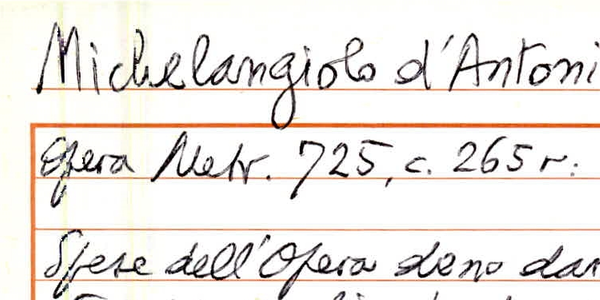 Michelangiolo d'Antoni
Opera Metr. 725, c. 265 r:
Spese dell'Opera deno dar